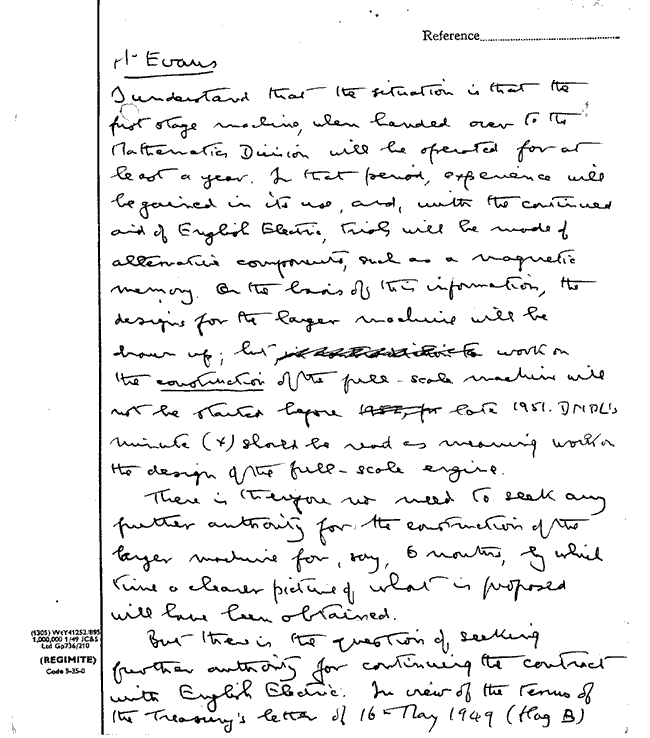 Reference
Mr Evans
I understand that the situation is that the
first stage machine, when handed over to the
Mathematics Division will be operated for at
least a year. In that period, experience will
be gained in its use, and, with the continued
aid of English Electric, trials will be made of
alternative components, such as a magnetic
memory. On the basis of this information, the
designs for the larger machine will be
drawn up; but, work on
the construction of the full-scale machine will
not be started before late 1951. DNPL's
minute (x) should be read as meaning work on
the design of the full-scale engine.
There is therefore no need to seek any
further authority for the construction of the
larger machine for, say, 6 months, by which
time a clearer picture of what is proposed
will have been obtained.
But there is the question of seeking
further authority for continuing the contract
with English Electric. In view of the terms of
the Treasury's letter of 16 May 1949 (flag B)
(1305) Wt
1,000,000 1/49 JC&S
Ltd Gp736/210
(REGIMITE)
Code 5-35-0